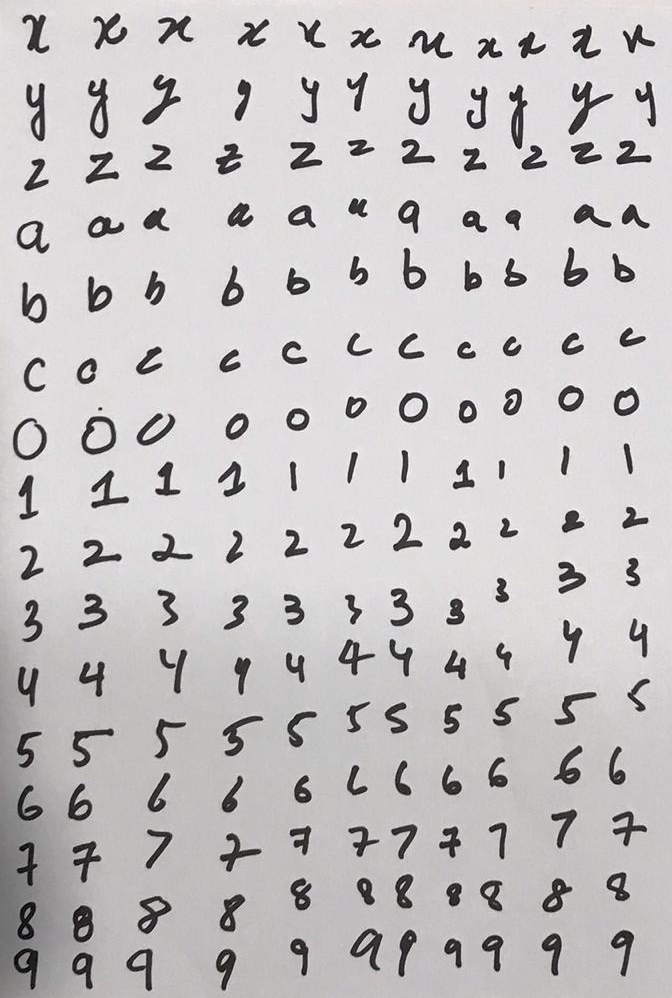 x x x x x x x x x x x
y y y y y y y y y y y
z z z z z z z z z z z
a a a a a a a a a a a
b b b b b b b b b b b
c c c c c c c c c c c
0 0 0 0 0 0 0 0 0 0 0
1 1 1 1 1 1 1 1 1 1 1
2 2 2 2 2 2 2 2 2 2 2
3 3 3 3 3 3 3 3 3 3 3
4 4 4 4 4 4 4 4 4 4 4
5 5 5 5 5 5 5 5 5 5 5
6 6 6 6 6 6 6 6 6 6 6
7 7 7 7 7 7 7 7 7 7 7
8 8 8 8 8 8 8 8 8 8 8
9 9 9 9 9 9 9 9 9 9 9